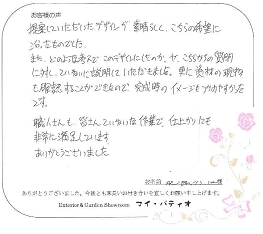 お客様の声
提案していただいたデザインが素晴らしく、こちらの希望に
沿ったものでした。
また、どのような考えでこのデザインにしたのか、や、こちらからの質問
に対し、ていねいに説明していただきました。更に資材の現物
も確認することができたので完成時のイメージもつかめやすかった
です。
職人さんも、皆さんていねいな作業で、仕上がりにも
非常に満足しています
ありがとうございました
お名前 様
ありがとうございました。今後とも末長いお付き合いを宜しくお願い申し上げます。
Exterior & Garden Showroom マイ・パティオ